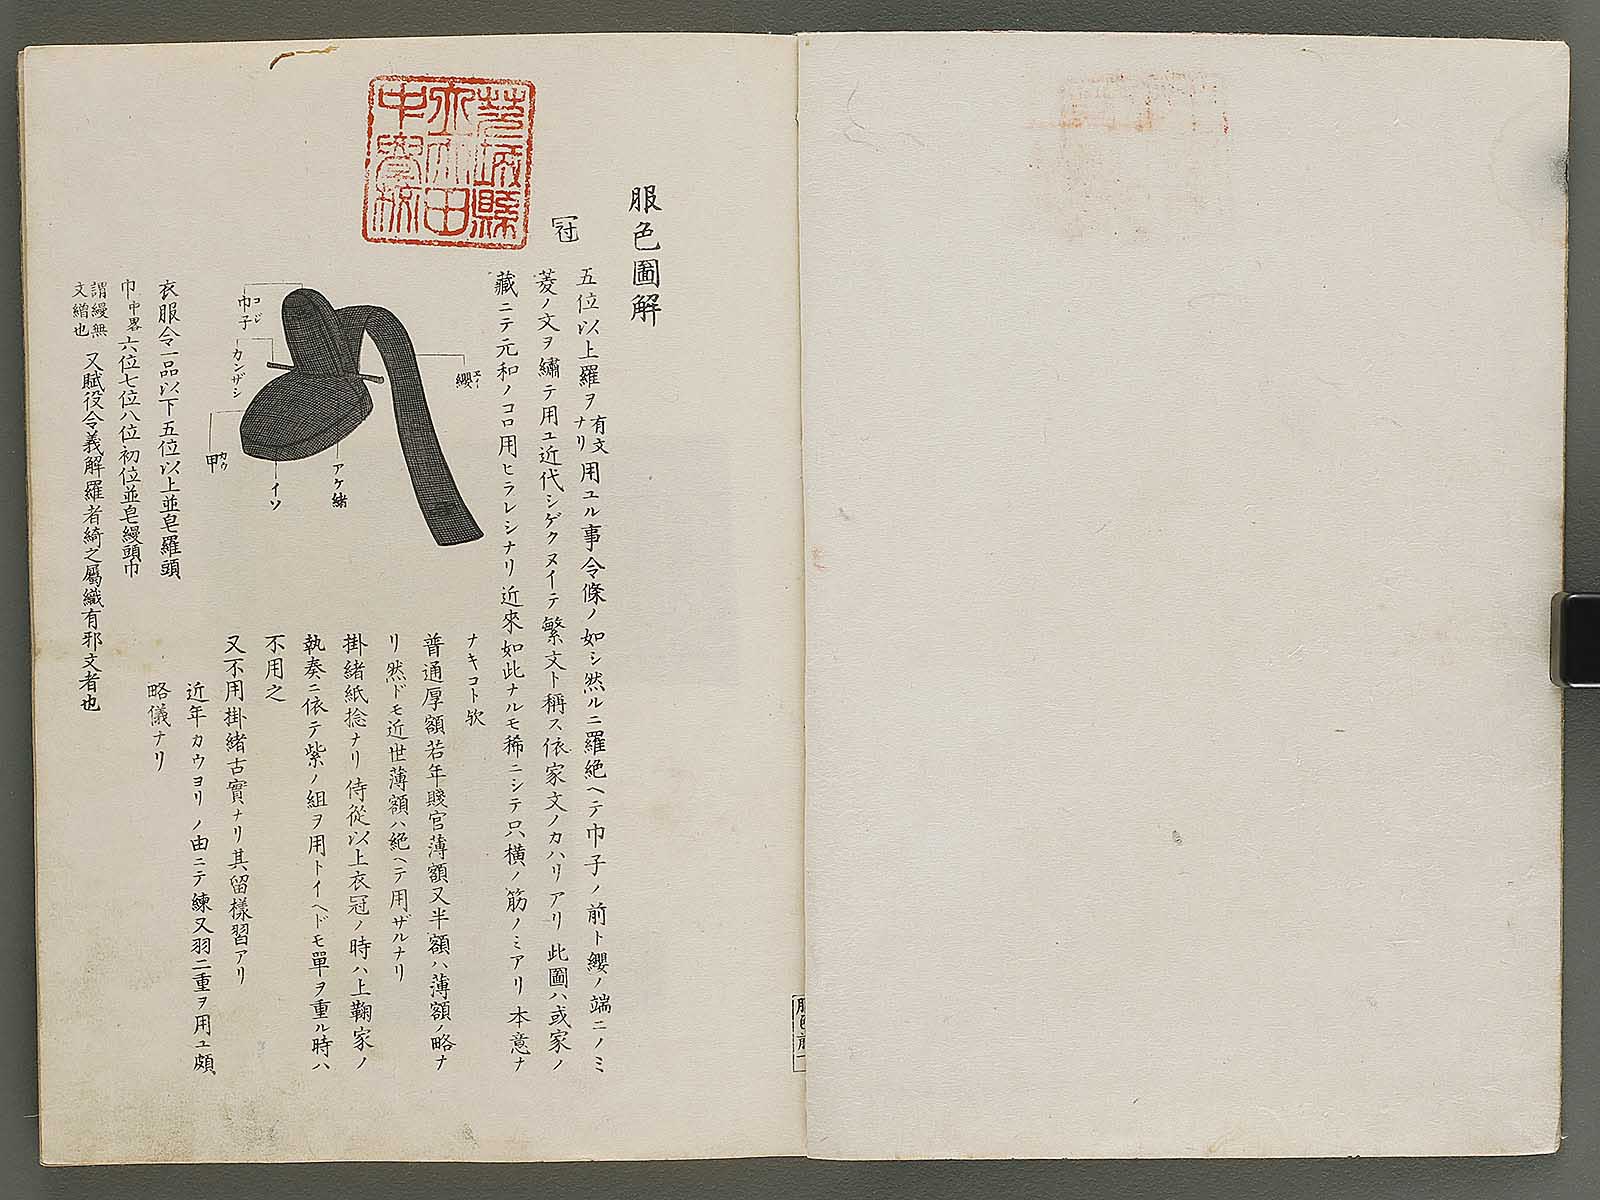 服色圖解
冠
五位以上羅ヲ有文ナリ用ユル事令條ノ如シ然ルニ羅絶ヘテ巾子ノ前ト纓ノ端ニノミ
菱ノ文ヲ繡テ用ユ近代シゲクヌイテ繁文ト稱ス依家文ノカハリアリ此圖ハ或家ノ
藏ニテ元和ノコロ用ヒラレシナリ近來如此ナルモ稀ニシテ只橫ノ筋ノミアリ本意ナ
ナキコト欤
普通厚額若年賤官薄額又半額ハ薄額ノ略ナ
リ然ドモ近世薄額ハ絶ヘテ用ザルナリ
掛緒紙捻ナリ侍從以上衣冠ノ時ハ上鞠家ノ
執奏ニ依テ紫ノ組ヲ用トイヘドモ單ヲ重ル時ハ
不用之
又不用掛緒古實ナリ其留樣習アリ
近年カウヨリノ由ニテ練又羽二重ヲ用ユ頗
略儀ナリ
纓エイ
巾子コジ
カンザシ
甲カウ
イソ
アケ緒
衣服令一品以下五位以上並皂羅頭
巾中畧六位七位八位初位並皂縵頭巾
謂縵無文繒也又賦役令義解羅者綺之屬織有邪文者也
茨城縣
中
田